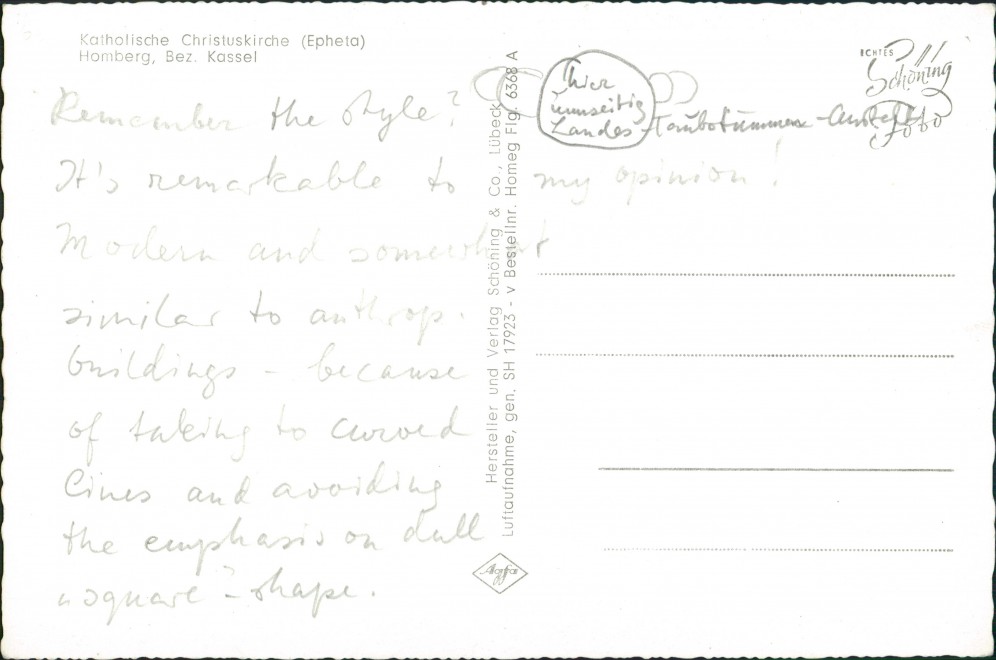 Katholische Christuskirche (Epheta)
Homberg, Bez. Kassel
Remember the style?
It's remarkable to my opinion!
Modern and somewhat
similar to anthrop.
buildings - because
of taking to curved
lines and avoiding
the emphasis on dull
"square"-shape.
Hersteller und Verlag Schöning & Co., Lübeck
Luftaufnahme, gen. SH 17923 - v Bestellnr. Homeg Flg. 6368 A
Agfa
hier
umseitig
Landes-Taubstummen-Anstalt
ECHTES
Schöning
Foto